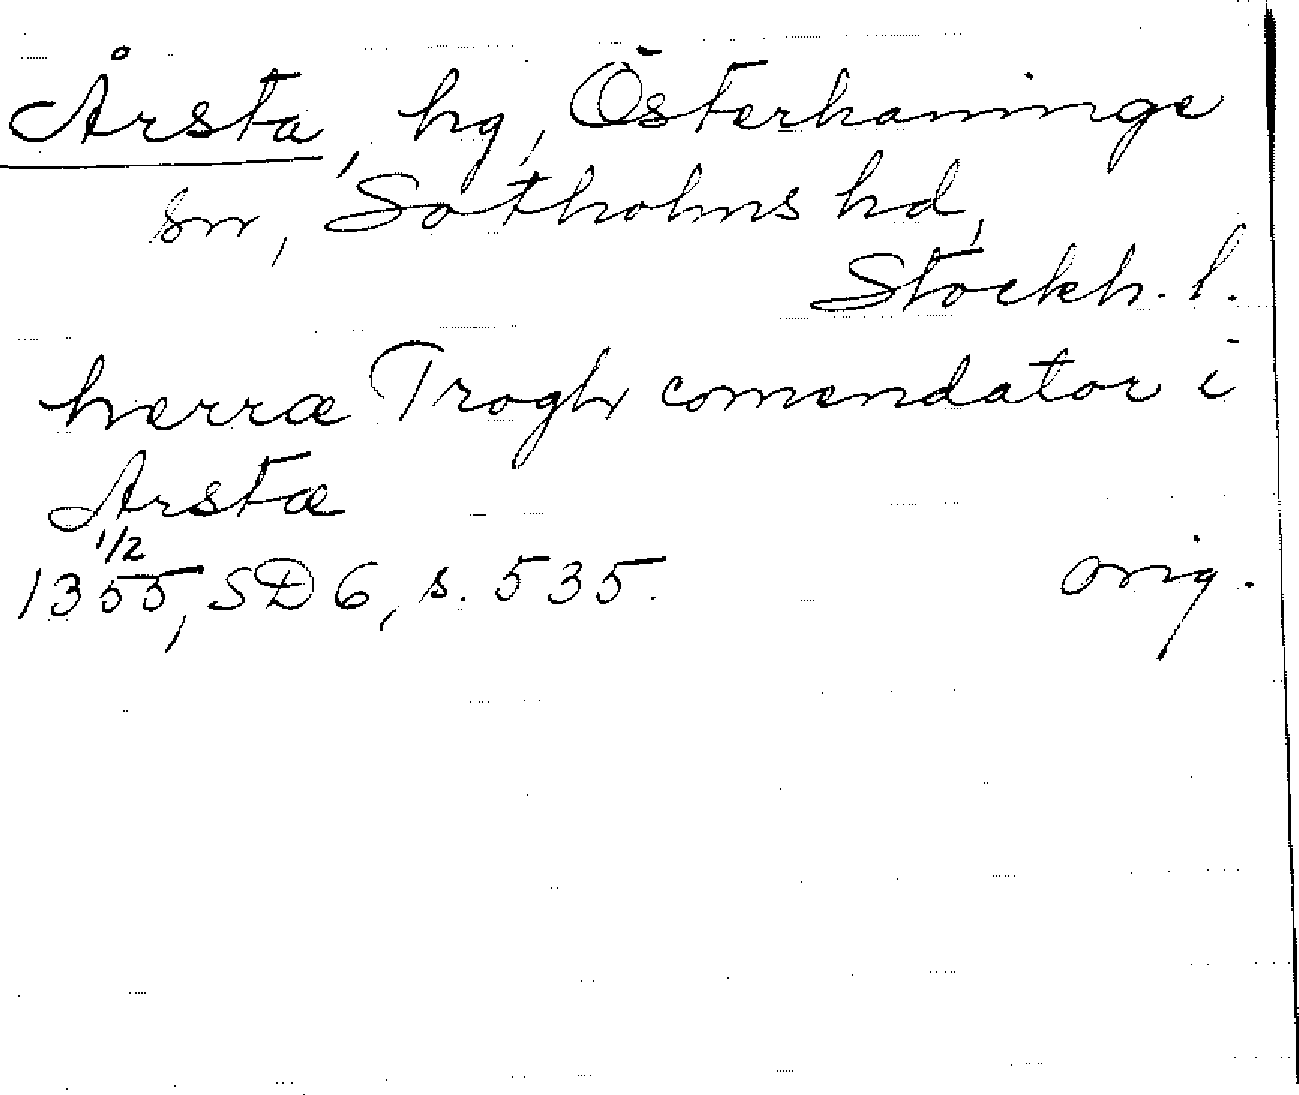 Årsta, hg, Österhaninge
sn, Sotholms hd,
Stockh. l.
herræ Trogh comendator i
Arstæ
1/2
1355, SD 6, s. 535. orig.